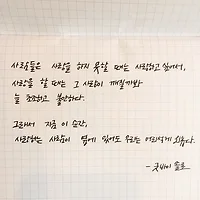 사람들은 사랑을 하지 못할 때는 사랑하고 싶어서,
사랑을 할 때는 그 사랑이 깨질까봐
늘 초조하고 불안하다.
그래서 지금 이 순간,
사랑하는 사람이 옆에 있어도 우리는 어리석게 외롭다.
- 굿바이 솔로